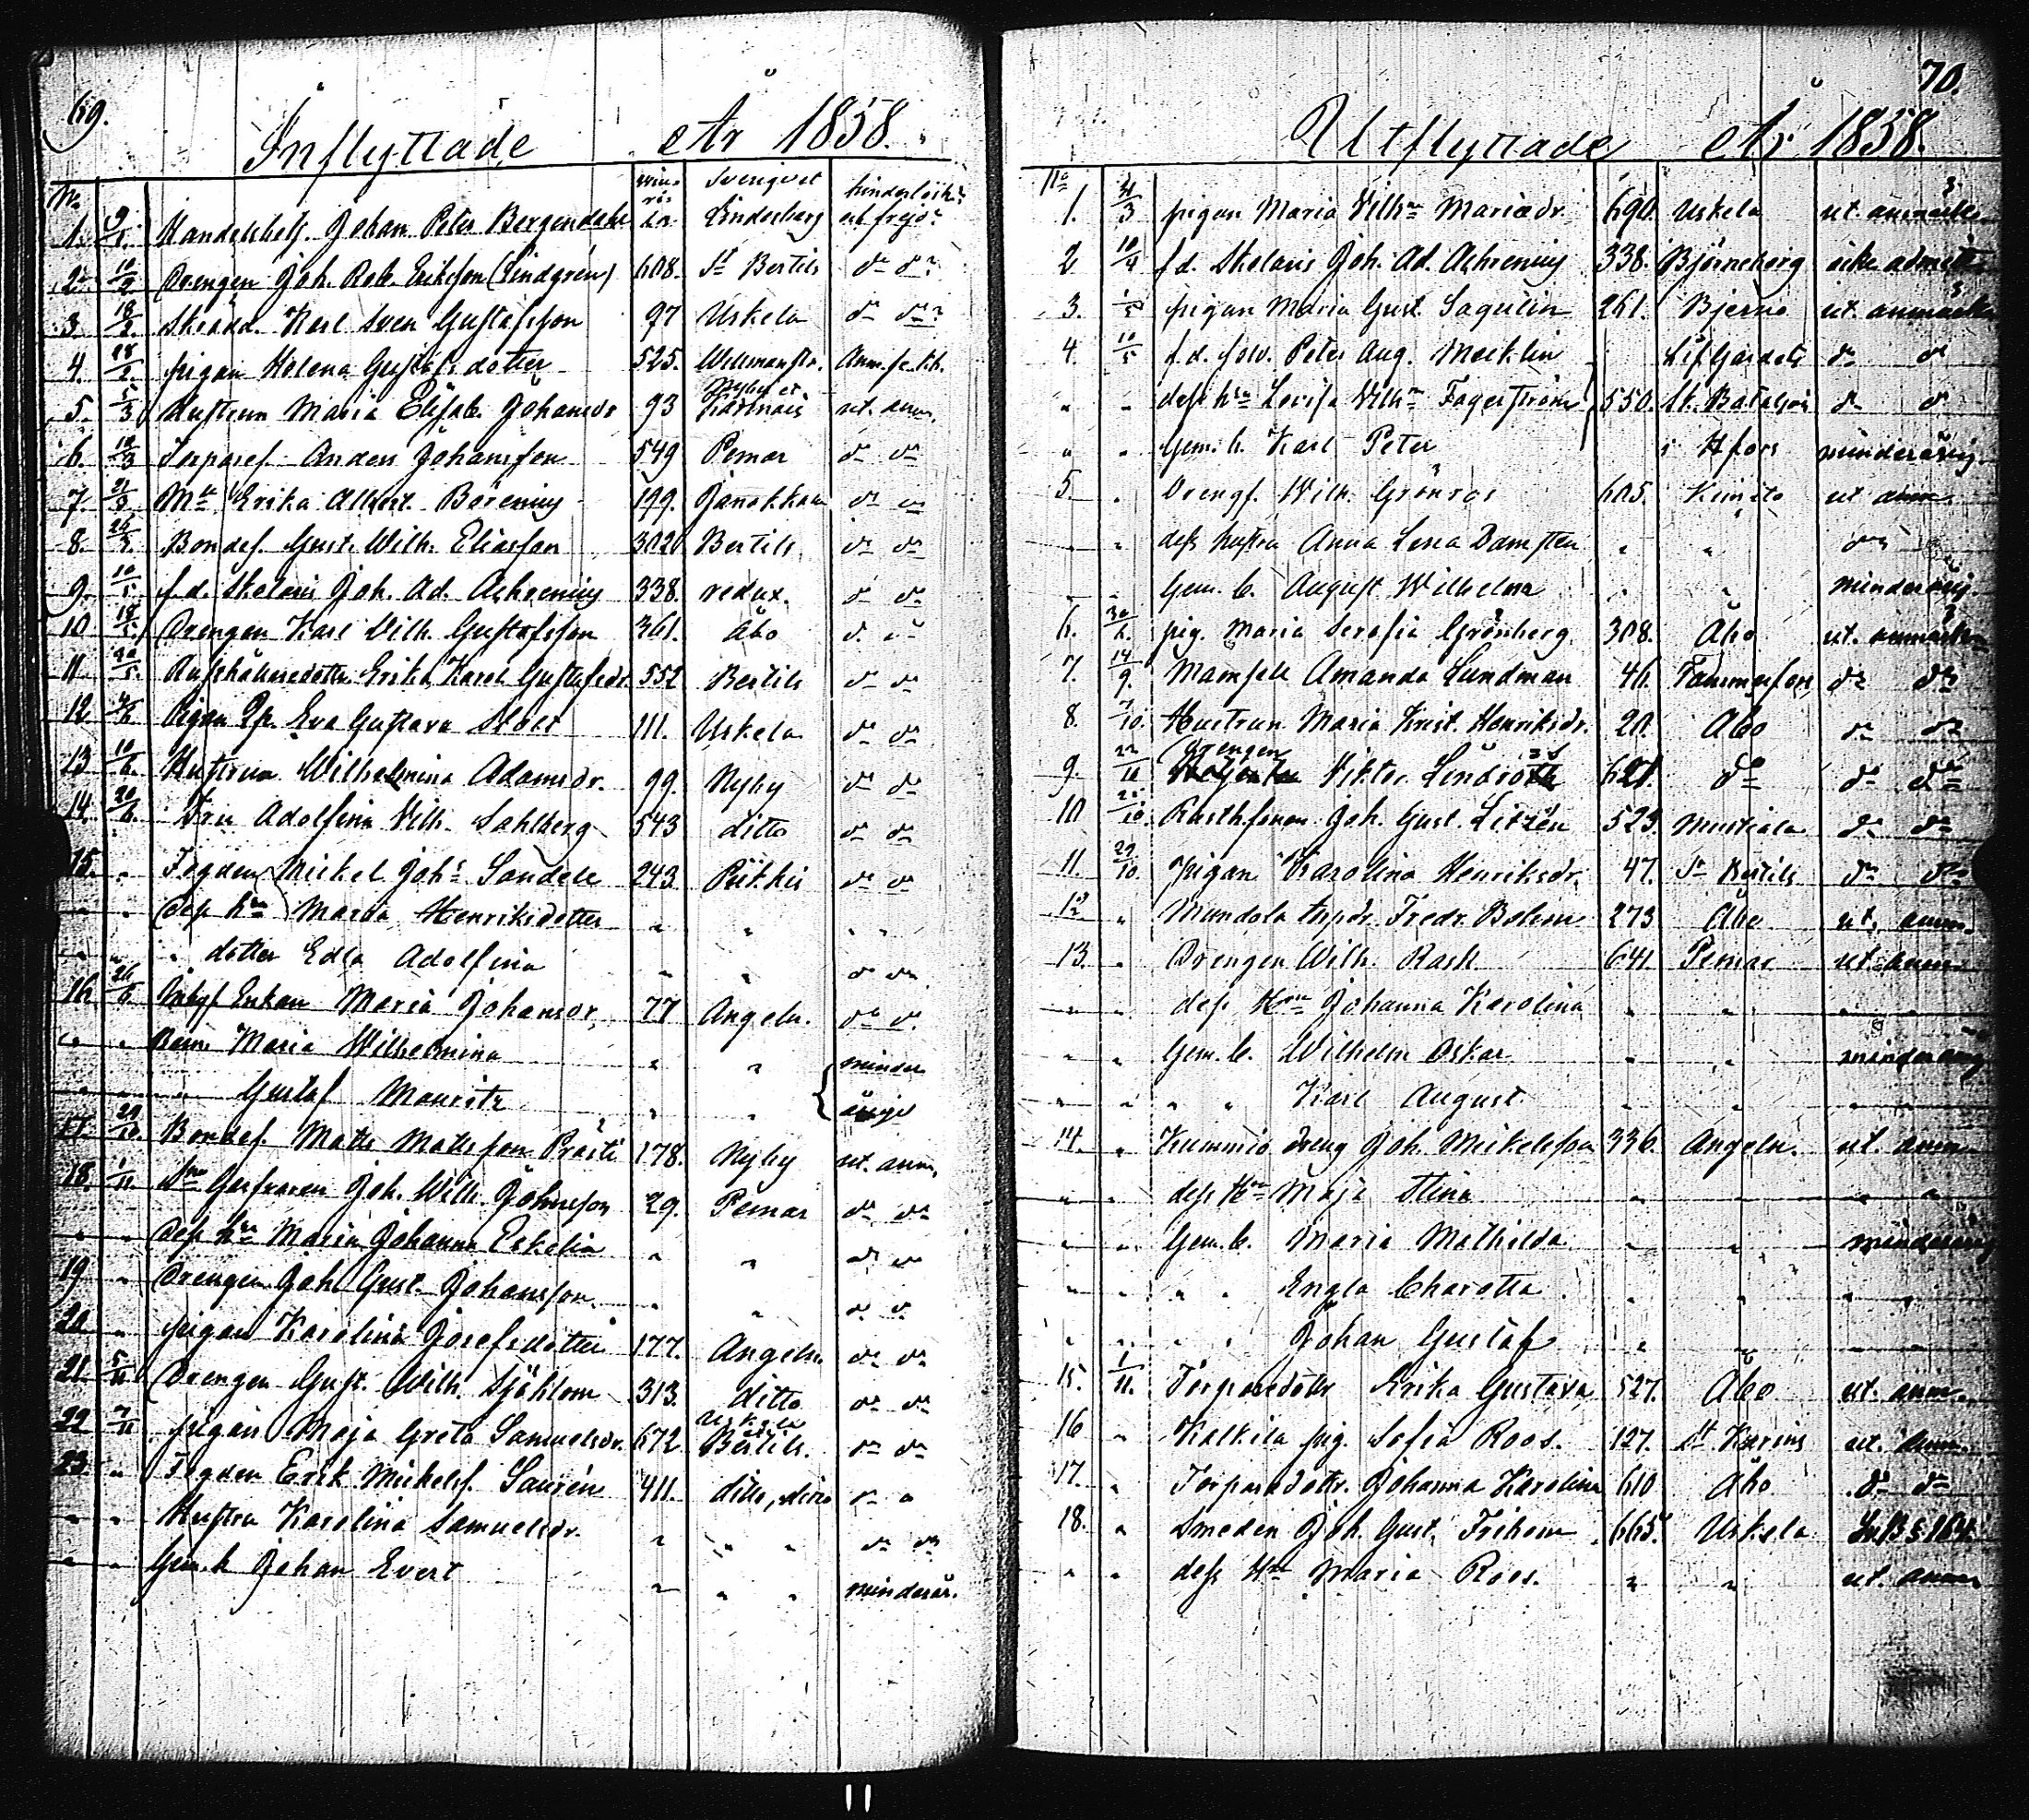 69.
Inflyttade År 1858.
No
1. 9/1. Handelsbetj. Johan Peter Bergendahl 20 Sverige et Lindesberg hinderslöshet ut frejd
2. 10/2 Drengen Joh. Rob. Eriksson (Lindgren) 608. St Bertils do do
3 18/2. Skrädd. Karl Sven Gustafsson 97 Uskela do do
4. 28/2. pigan Helena Gustafsdotter 525. Willmanstr.
5. 5/3 Hustrun Maria Elisab. Johansdr 93 Nyby et ut. anm.
6. 18/3 Torparef. Anders Johansson 549 Pemar do do
7. 21/3 Erika Albert. Borenius 199. Janakkala do do
8. Bondes. Gust. Wilh. Eliasson 302 Bertils do do
9. 10/5 f.d. Skolaris Joh. Ad. Achrenius 338. redux. do do
10 18/5. Drengen Karl Wilh. Gustafsson 361. Åbo do do
11 20/5. Erika Karol. Gustafsdr. 552 Bertils do do
12 4/6 Pigan Eva Gustava Ståhl 111. Uskela do do
13 10/6. Hustrun Wilhelmina Adamsdr. 99. Nyby do do
14. 20/6. Fru Adolfina Wilh. Sahlberg 543 ditto do do
15. " Fogden Mickel Johs Sandell 243. Piikkis do do
" " dess hu Maria Henriksdotter " " " "
" " " dotter Edla Adolfina " " do do
16. 26/6. Enkan Maria Johansdr. 77 Angeln. do do
" " Barn: Maria Wilhelmina " " minder
" " " Gustaf Mauritz " " åriga
17. 29/10. Bondes. Matts Mattsson Prästi 178. Nyby ut. anm.
18. 1/11 Joh. Wilh. Johnsson 29. Pemar do do
" " dess hu Maria Johanna Eskelin " " do do
19 " Drengen Joh. Gust. Johansson " " do do
20 " pigan Karolina Josefsdotter 177. Angeln. do do
21. 5/11 Drengen Gust. Wilh. Sjöblom 313. ditto do do
22 7/11 pigan Maja Greta Samuelsdr. 672 Uskela Bertils. do do
23. " Fogden Erik Mickelss. Saurén 411. ditto, ditto do "
" " Hustru Karolina Samuelsdr. " " " do do
" " Gem. b Johan Evert " " " minderår.
70.
Utflyttade År 1858.
No
1. pigan Maria Vilhna Mariædr. 690. Uskela ut. anmärkn
2 10/4 f.d. Skolaris Joh. Ad. Achrenius 338. Björneborg icke admitt
3. 1/5 pigan Maria Gust. Sagulin 261. Bjerno ut. anmärkn
4. 10/5 f.d. solv. Peter Aug. Mecklin Lif Gardets do do
" " dess hu Lovisa Vilhna Fagerström 550. Sk. Bataljon do do
" " Gem. b. Karl Peter i Hfors minderårig.
5 " Drengs. Wilh. Grönros 605. Kimito ut anm.
" " dess hustru Anna Lena Damsten " " do "
" " Gem. b. August Wilhelm " " minderårig.
6. 30/6. pig. Maria Serafia Grönberg. 308. Åbo ut. anmärkn
7. 14/9. Mamsell Amanda Lundman 46. Tammerfors do do
8. 7/10. Hustrun Maria Krist. Henriksdr. 20. Åbo do do
9. 22/10 drengen Viktor Lindroth 621. do do do
10 25/10. Rusthsonen Joh. Gust. Litzén 523. Mustiala do do
11. 29/10 pigan Karolina Henriksdr. 47. St Bertils do do
12 " Mundola torpdr. Fredr. Bohm 273 Åbo ut. anm.
13. " Drengen Wilh. Rask 641. Pemar ut. anm.
" " dess Hru Johanna Karolina " " " "
" " Gem. b. Wilhelm Oskar " " minderårig
" " " " Karl August " " " "
14. " Kummio dreng Joh. Mickelsson 336. Angeln. ut. anm
" " dess Hu Maja Stina " " " "
" " Gem. b. Maria Mathilda " " minderårig
" " " " Engla Charotta " " " "
" " " " Johan Gustaf " " " "
15. 1/11. Torparedottr Erika Gustava 527. Åbo ut. anm.
16 " Kalkila pig. Sofia Roos. 127. St Karins ut. anm.
17. " Torparedottr. Johanna Karolina 610 Åbo do do
18. " Smeden Joh. Gust. Frihem 665. Uskela
" " dess Hu Maria Roos. " " ut. anm
11